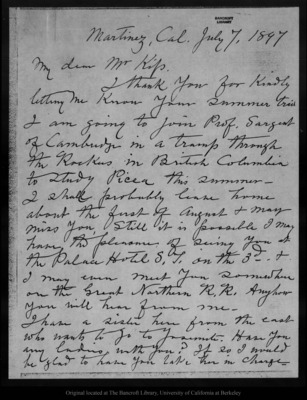 BANCROFT
LIBRARY
Martinez, Cal. July 7, 1897
My dear Mr Kip.
I thank you for kindly
letting me know your summer trip
I am going to join Prof. Sargent
of Cambridge in a tramp through
the Rockies in British Columbia
to study Picea this summer—
I shall probably leave home
about the first of August & may
miss you, Still it is possible I may
have the pleasure of seeing you at
the Palace Hotel S.F. on the 3rd. &
I may even meet you somewhere
on the Great Northern R.R. Anyhow
you will hear from me.
I have a sister here from the east
who wants to go to Yosemite. Have you
any ladies with you? If so I would
be glad to have you take her in charge—
Original located at The Bancroft Library, University of California at Berkeley